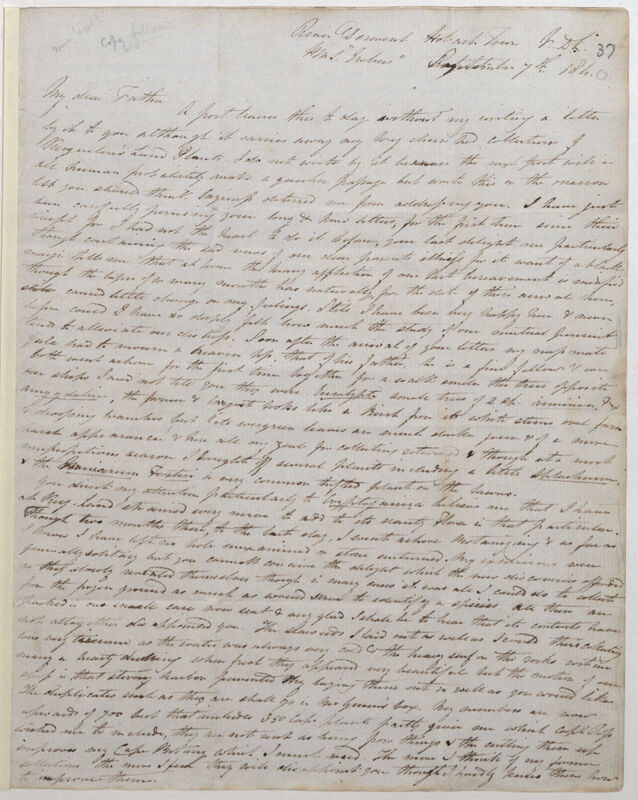 copy follows
River Derwent Hobart Town V.D.L.
37
H.M.S. "Erebus" September 7th 1840
My dear Father
A post leaves this to day without my writing a letter
by it to you although it carries away my long cherished collections of
Kerguelen's Land Plants. I do not write by it because the next post will in
all human probability make a quicker passage but write this on the
lest you should think deterred me from addressing you. I have just
been carefully perusing your long & kind letters, for the first time since their
receipt for I had not the heart to do it before, your last delight me particularly
though containing the sad news of our dear parents illness for it want of a black
margin tells me that at home the heavy affliction of our last bereavement is modified
though the lapse of so many months has naturally, for the date of their arrival here,
caused little change on my feelings. Still I have been very happy here & never
could I have so deeply felt how much the study of our mutual pursuit
tend to alleviate our distress. Soon after the arrival of your letters my mess mate
had to mourn a heavier loss, that of his father, he is a fine fellow & we
both went ashore for the first time together for a walk under the trees opposite
our ships I need not tell you they were Eucalypti small trees of 2 sp. &
amygdalina, the former & largest looks like a Birch from its white stems and
& drooping branches but its evergreen leaves are much darker green & of a more
harsh appearance & here all my zeal for collecting returned & though at a much
unpropitious season I brought off several plants including a little Splachnum
& the is a very common tufted plant on the lawns.
You direct my attention particularly to Cryptogamia & believe me that I have
at Kerg. Land strained every nerve to add to its scanty Flora in that particular.
Though two months there, to the last day, I went ashore Botanizing & as far as
I know I have left no hole unexamined or stone unturned. My excursions were
generally solitary but you cannot conceive the delight which the new discoveries afforded
as they slowly revealed themselves though in many cases it was all I could do to collect
from the frozen ground as much as would serve to identify a species. All these are
packed in one small case now sent & very glad I shall be to hear that its contents have
not altogether disappointed you. The Seaweeds I laid out as well as I could their collecting
was very as the water was always very cold & the heavy surf on the rocks cost me
many a hearty ducking when fresh they appeared very beautiful but the motion of our
ship in that stormy harbor prevented my laying them out as well as you would like.
The duplicates such as they are shall go in the Govmt box. My numbers are now
upwards of 700 but that includes 350 Cape plants partly given me which Capt. Ross
wished me to include, they are not sent as being poor things & the cutting them up
improves my Cape Botany which I much need. The more I think of my former
collections the more I feel they will disappoint you though I hardly know how
to improve them.